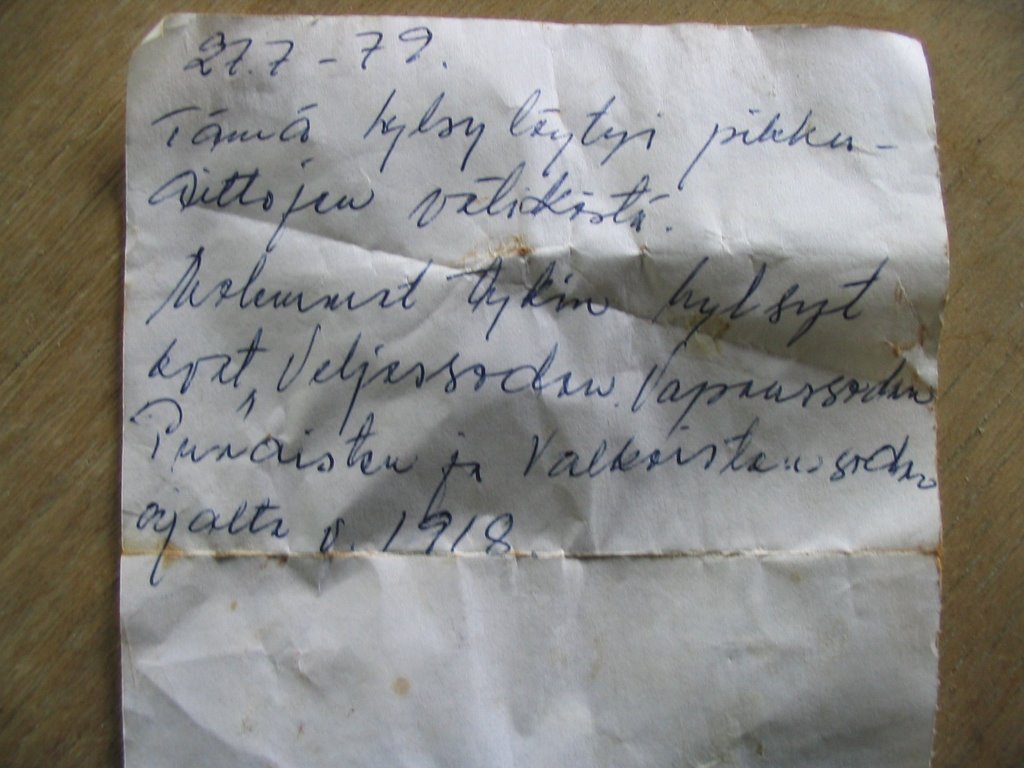 27.7-79.
Tämä hylsy löytyi pikku-
siltojen väliköstä.
Molemmat tykin hylsyt
ovat „Veljessodan. Vapaussodan
Punaisten ja Valkoisten sodan
ajalta v. 1918.